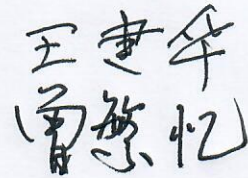 王建华
曾繁忆